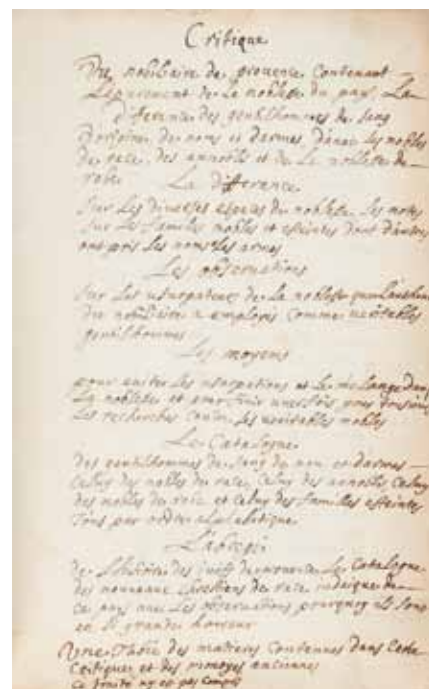 Critique
Du nobiliaire de provence Contenant
Lepurement de La noblesse du pays, La
diference des gentilshommes de sang
de noms et darmes, dauec les nobles
de race, des annoblis et de La noblesse de
robe
La difference
Sur Les diuerses especes de noblesse, Les notes
Sur Les familles nobles et esteintes dont dautres
ont pris Les noms Les armes
Les obseruations
Sur Les usurpateurs de La noblesse que Lautheur
du nobiliaire a employés Comme ueritables
gentilshommes
Les moyens
pour euiter Les usurpations et Le mélange dans
La noblesse et pour finir une fois pour tousiours
Les recherches Contre Les ueritables nobles
Le Catalogue
des gentilshommes de sang de nom et darmes
Celuy des nobles de race, Celuy des annoblis Celuy
des nobles de robe et Celuy des familles esteintes
Tous par ordre alphabetique
Labregé
de Lhistoire des iuifs de prouence Le Catalogue
des nouueaux Chrestiens de race iudaique de
Ce pays auec Les obseruations pourquoy ils sont
en si grande horreur
Une Table des matieres Contenues dans Cette
Critique et des monoyes anciennes
Ce traité ny est pas Compris